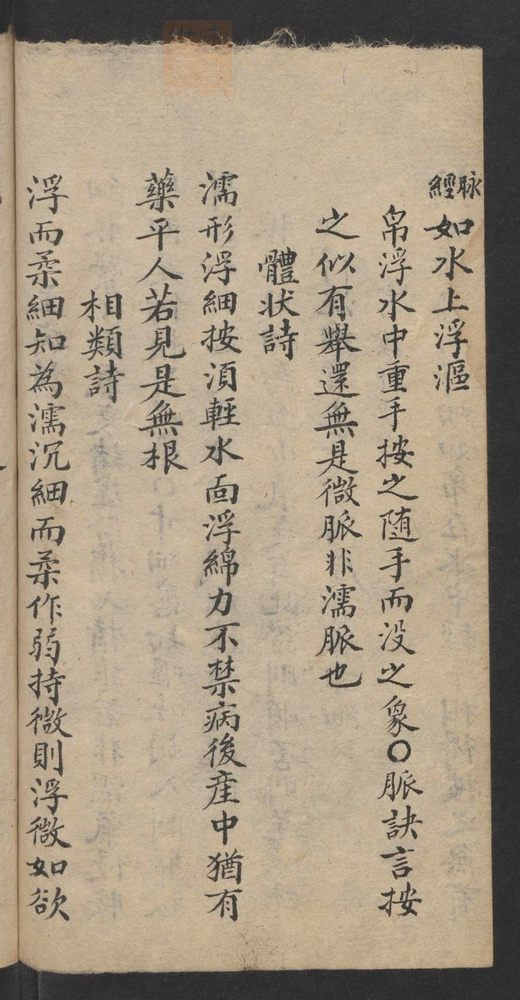 脉經如水上浮漚
帛浮水中重手按之随手而没之象○脈訣言按
之似有舉還無是微脈非濡脈也
體状詩
濡形浮細按湏輕水靣浮綿力不禁病後產中猶有
藥平人若見是無根
相類詩
浮而柔細知為濡沉細而柔作弱持微則浮微如欲